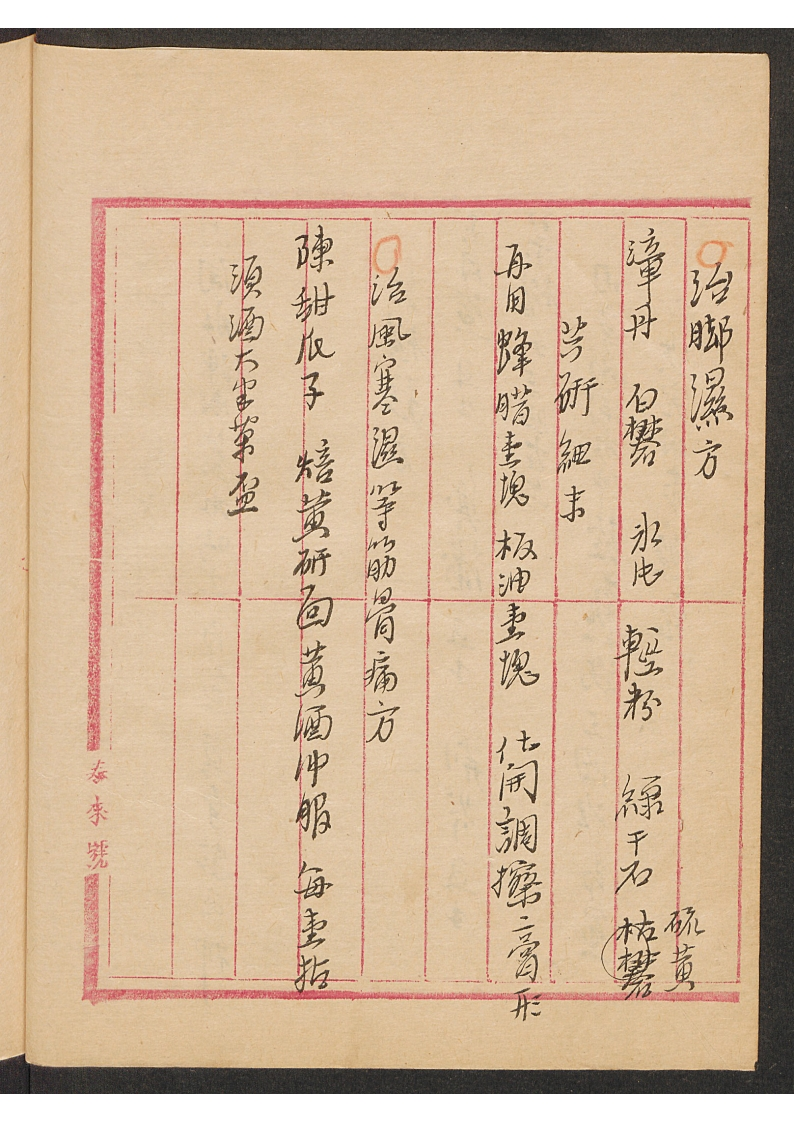 治脚濕方
漳丹 白礬 氷片 輕粉 綠干石 枯礬
硫黄
共研細末
再用蜂腊壹塊 板油壹塊 化開調擦二膏形
治風寒濕等筋骨痛方
陳甜瓜子 焙黄研面 黄酒冲服 每壹指
須酒大半茶盃
泰來號